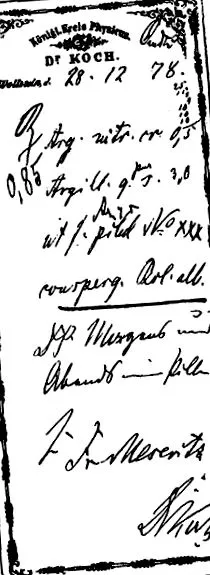 Königl. Kreis Physicus.
Dr KOCH.
Wollstein, d. 28. 12 78.
Rp Arg. nitr. cr. 0,5
0,85 Argill. q. s. 3,0
ut f. pilul No XXX
consperg. Bol. alb.
Morgens und
Abends Pille